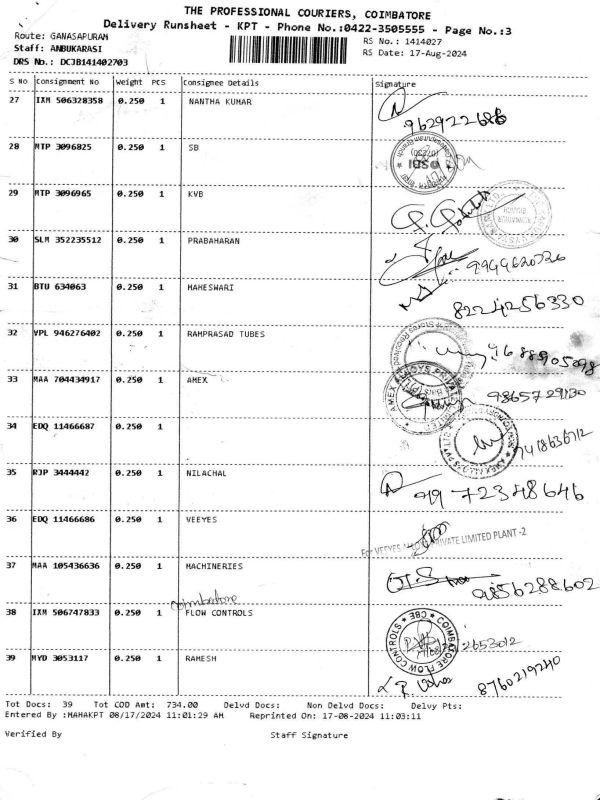 THE PROFESSIONAL COURIERS, COIMBATORE
Delivery Runsheet - KPT - Phone No.:0422-3505555 - Page No.:3
Route: GANASAPURAM
RS No.: 1414027
Staff: ANBUKARASI
RS Date: 17-Aug-2024
DRS No.: DCJB141402703
S No Consignment No Weight PCS Consignee Details Signature
27 IXM 506328358 0.250 1 NANTHA KUMAR
9629922686
28 MTP 3096825 0.250 1 SB
SBI
29 MTP 3096965 0.250 1 KVB
30 SLM 352235512 0.250 1 PRABAHARAN
9944620726
31 BTU 634063 0.250 1 MAHESWARI
8224256330
32 VPL 946276402 0.250 1 RAMPRASAD TUBES
33 MAA 704434917 0.250 1 AMEX
AMEX ALLOYS PRIVATE LIMITED
34 EDQ 11466687 0.250 1
35 RJP 3444442 0.250 1 NILACHAL
36 EDQ 11466686 0.250 1 VEEYES
For VEEYES PRIVATE LIMITED PLANT -2
37 MAA 105436636 0.250 1 MACHINERIES
9856288602
coimbatore
38 IXM 506747833 0.250 1 FLOW CONTROLS
COIMBATORE FLOW CONTROLS * CBE *
39 MYD 3053117 0.250 1 RAMESH
8760219240
Tot Docs: 39 Tot COD Amt: 734.00 Delvd Docs: Non Delvd Docs: Delvy Pts:
Entered By :MAHAKPT 08/17/2024 11:01:29 AM Reprinted On: 17-08-2024 11:03:11
Verified By Staff Signature